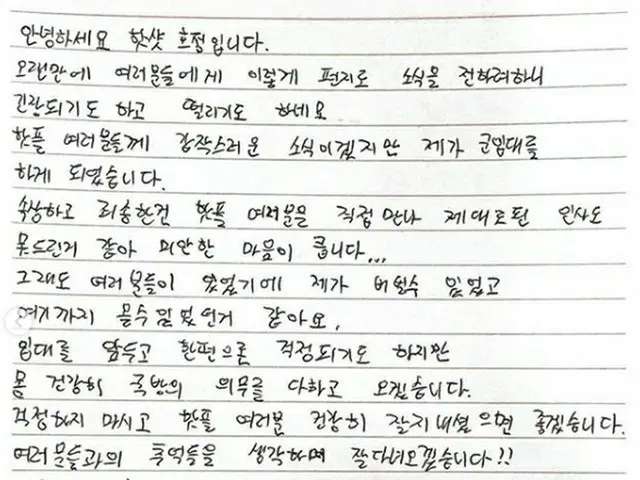 안녕하세요 핫샷 호정입니다.
오랜만에 여러분들에게 이렇게 편지로 소식을 전하려하니
긴장되기도 하고 떨리기도 하네요
핫플 여러분들께 갑작스러운 소식이겠지만 제가 군입대를
하게 되었습니다.
속상하고 죄송한건 핫플 여러분을 직접 만나 제대로된 인사도
못드린거 같아 미안한 마음이 큽니다...
그래도 여러분들이 있었기에 제가 버틸수 있었고
여기까지 올수있었던거 같아요.
입대를 앞두고 한편으론 걱정되기도 하지만
몸 건강히 국방의 의무를 다하고 오겠습니다.
걱정하지 마시고 핫플 여러분 건강히 잘지내셨으면 좋겠습니다.
여러분들과의 추억들을 생각하며 잘다녀오겠습니다!!